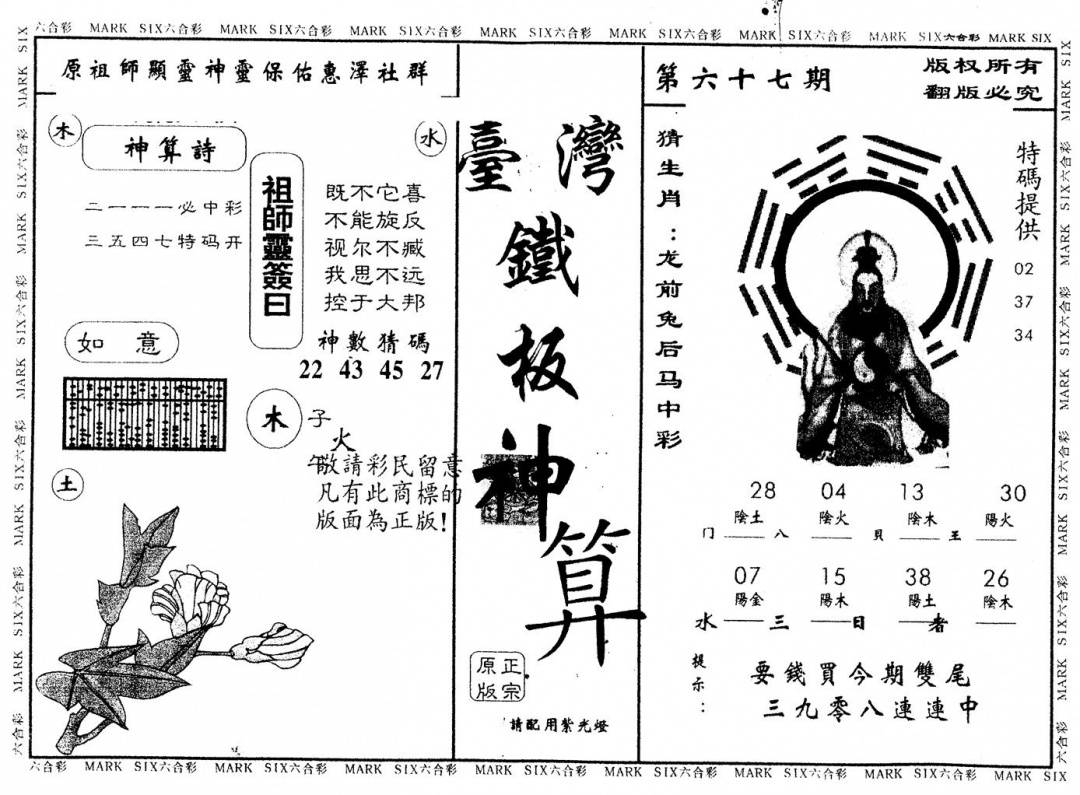 六合彩 MARK SIX六合彩 MARK SIX六合彩 MARK SIX六合彩 MARK SIX六合彩 MARK SIX六合彩 MARK SIX六合彩 MARK SIX六合彩 MARK SIX
原祖師顯靈神靈保佑惠澤社群
木
神算詩
水
二一一一必中彩
三五四七特码开
祖師靈簽曰
既不它喜
不能旋反
视尔不臧
我思不远
控于大邦
神數猜碼
22 43 45 27
如 意
木
子
火
敬請彩民留意
凡有此商標的
版面為正版!
土
臺灣
鐵
板
神
算
原正
版宗
請配用紫光燈
第六十七期
版权所有
翻版必究
猜生肖:龙前兔后马中彩
特碼提供
02
37
34
28 04 13 30
陰土 陰火 陰木 陽火
门 八 貝 王
07 15 38 26
陽金 陽木 陽土 陰木
水 三 日 者
提示:
要錢買今期雙尾
三九零八連連中
六合彩 MARK SIX六合彩 MARK SIX六合彩 MARK SIX六合彩 MARK SIX六合彩 MARK SIX六合彩 MARK SIX六合彩 MARK SIX六合彩 MARK SIX